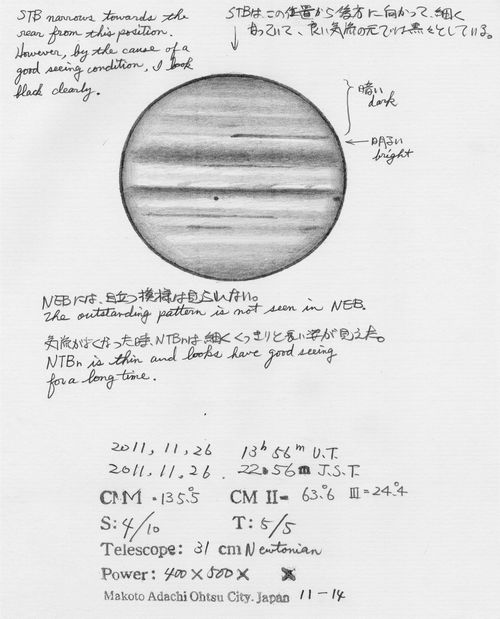 STB narrows towards the
rear from this position.
However, by the cause of a
good seeing condition, I look
black clearly.
STBは、この位置から後方に向かって、細く
なっていて、良い気流の元では黒々としている。
暗い
dark
明るい
bright
NEBには、目立つ模様は見られない。
The outstanding pattern is not seen in NEB.
気流がよくなった時、NTBnは細くくっきりと長い姿が見えた。
NTBn is thin and looks have good seeing
for a long time.
2011, 11, 26 13h 56m U.T.
2011, 11, 26. 22h 56m J.S.T.
CMI = 135°.5 CM II= 63°.6 III=24°.4
S: 4/10 T: 5/5
Telescope: 31 cm Newtonian
Power: 400× 500×
Makoto Adachi Ohtsu City. Japan 11-14